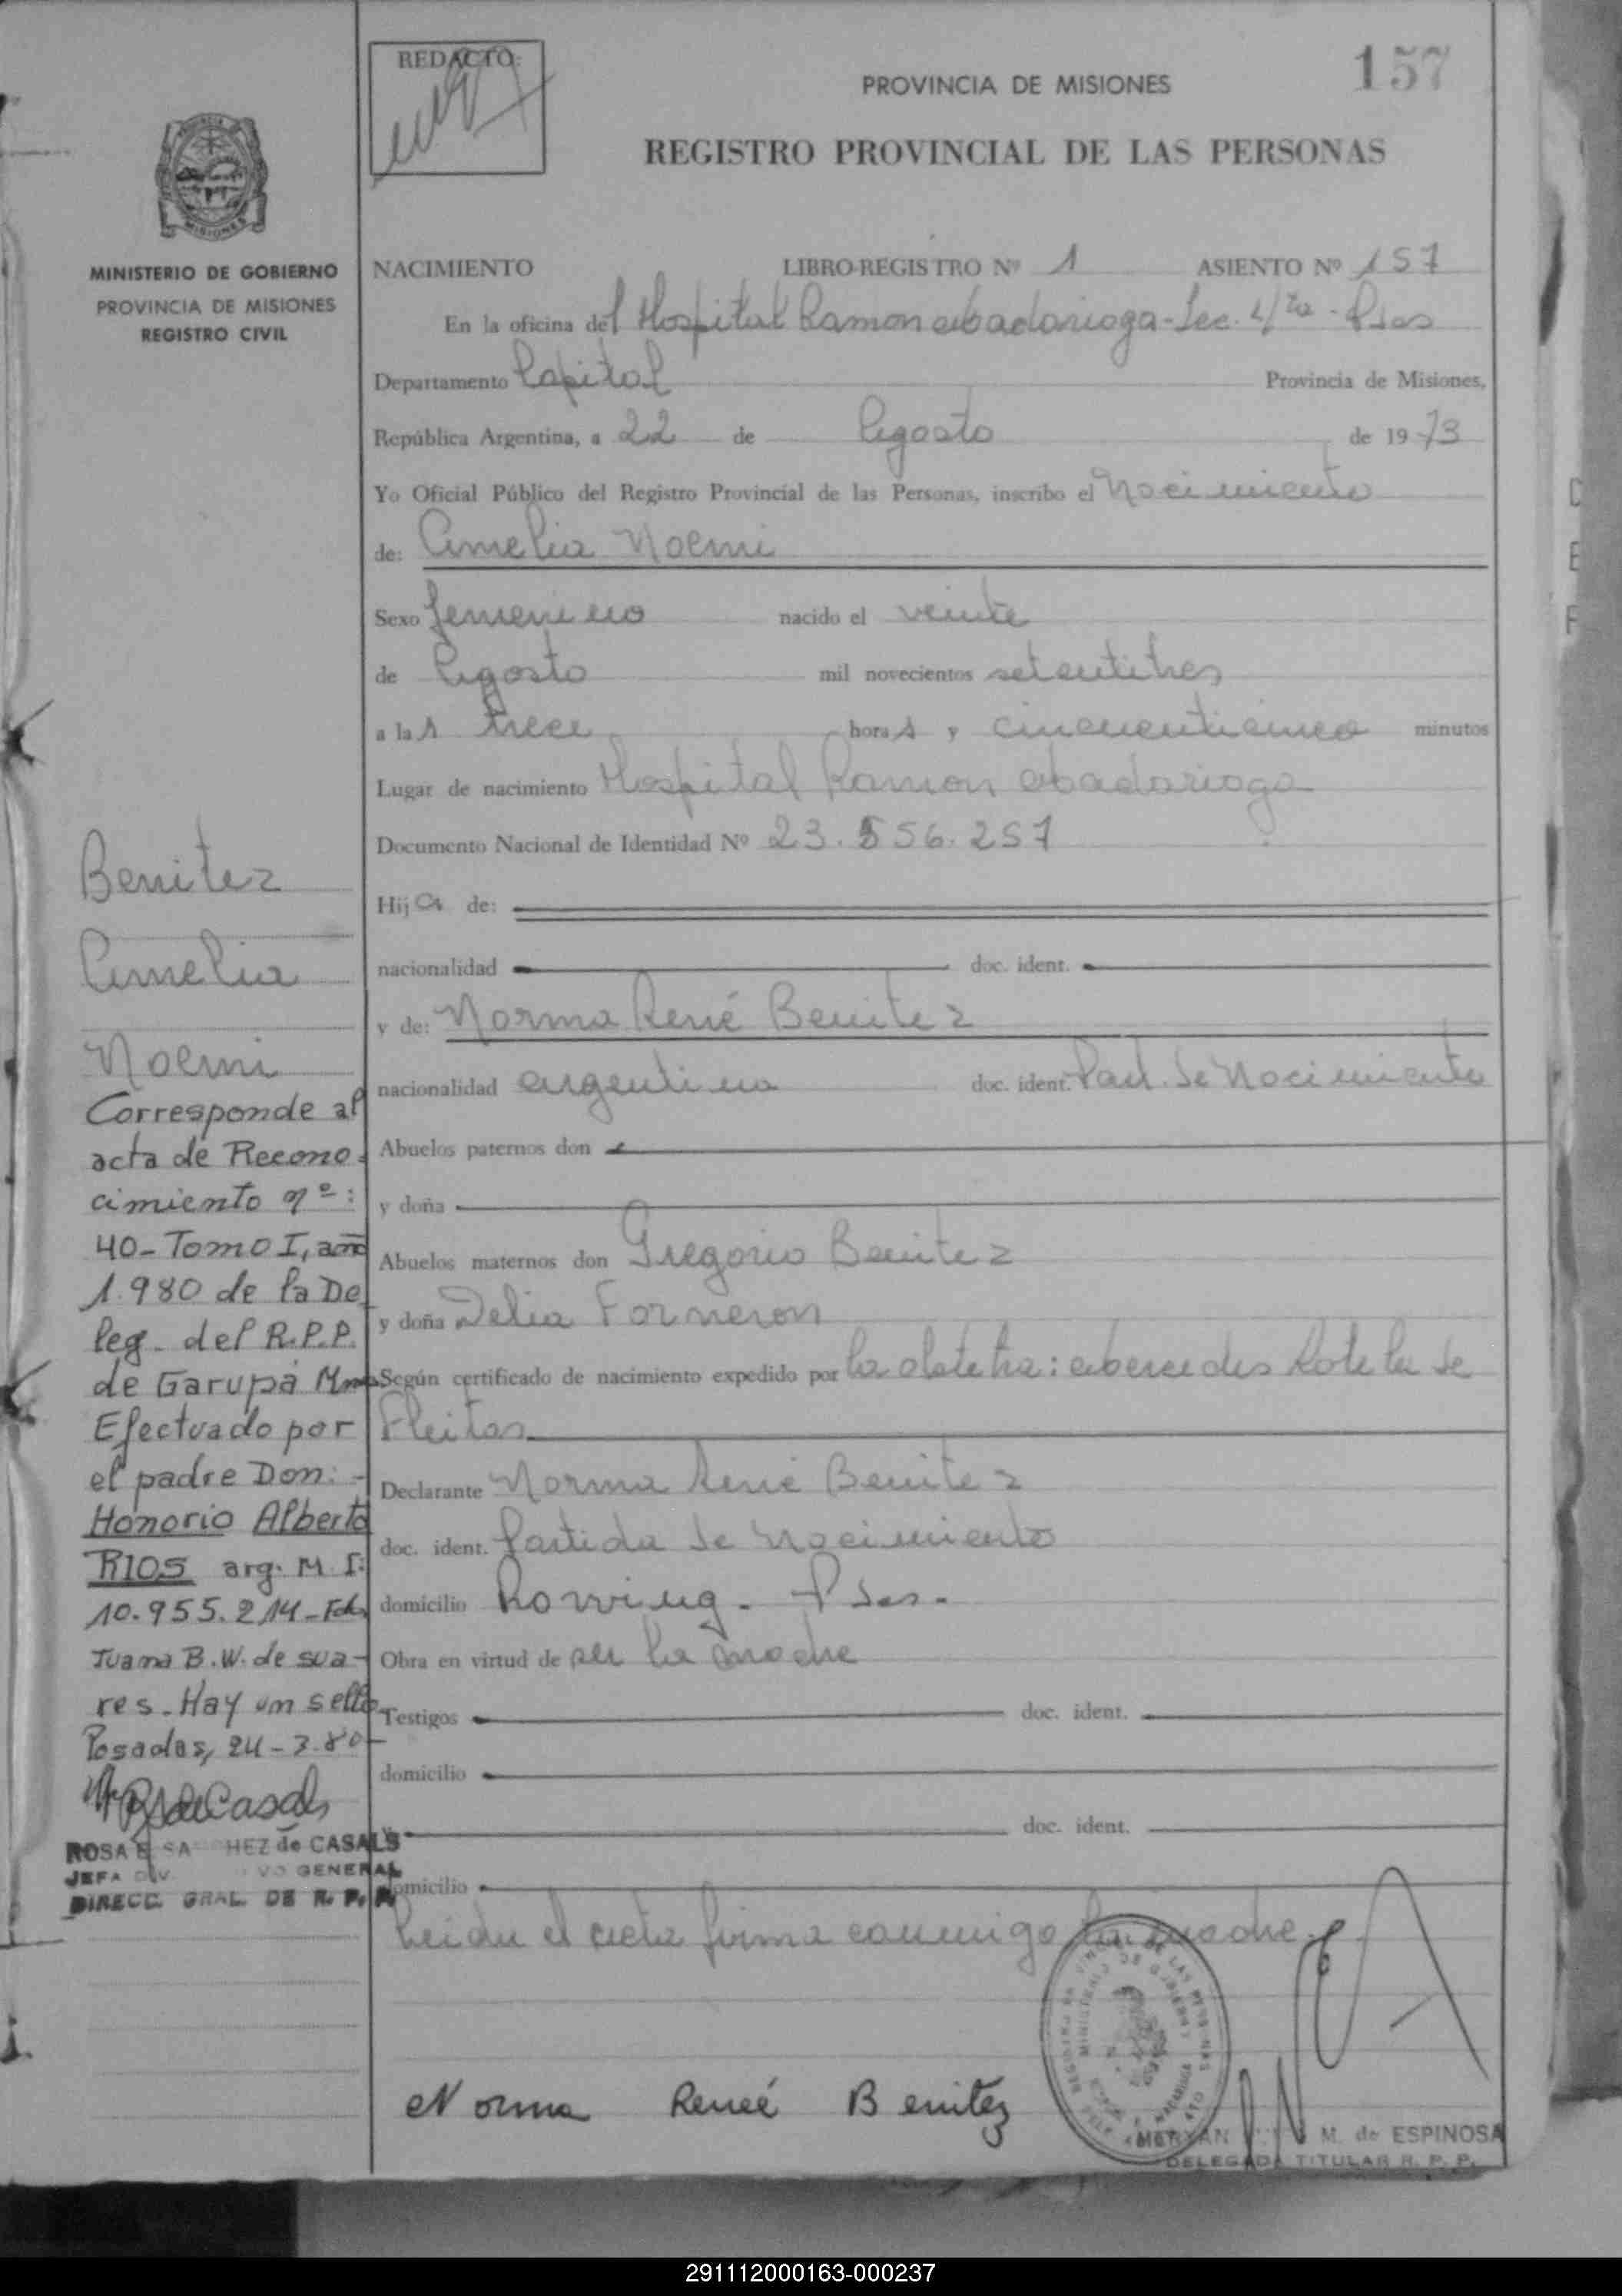 REDACTO:
157
PROVINCIA DE MISIONES
REGISTRO PROVINCIAL DE LAS PERSONAS
PROVINCIA
MISIONES
MINISTERIO DE GOBIERNO
PROVINCIA DE MISIONES
REGISTRO CIVIL
NACIMIENTO LIBRO-REGISTRO Nº 1 ASIENTO Nº 157
En la oficina del Hospital Ramon Madariaga - Sec. 4/ta - Pdas
Departamento Capital Provincia de Misiones,
República Argentina, a 22 de Agosto de 1973
Yo Oficial Público del Registro Provincial de las Personas, inscribo el Nacimiento
de: Amelia Noemi
Sexo femenino nacido el veinte
de Agosto mil novecientos setentitres
a las trece horas y cincuenticinco minutos
Lugar de nacimiento Hospital Ramon Madariaga
Documento Nacional de Identidad Nº 23.556.257
Hija de:
nacionalidad doc. ident.
y de: Norma René Benitez
nacionalidad argentina doc. ident. Part. de Nacimiento
Abuelos paternos don
y doña
Abuelos maternos don Gregorio Benitez
y doña Delia Forneron
Según certificado de nacimiento expedido por la obstetra: Mercedes Rotela de
Fleitas
Declarante Norma René Benitez
doc. ident. Partida de Nacimiento
domicilio Rowing - Pdas.
Obra en virtud de ser la madre
Testigos doc. ident.
domicilio
doc. ident.
domicilio
Leida el acta firma conmigo la madre.
Norma Reneé Benitez
M. de ESPINOSA
DELEGADA TITULAR R. P. P.
Benitez
Amelia
Noemi
Corresponde al
acta de Recono-
cimiento nº:
40- Tomo I, año
1.980 de la De
leg. del R.P.P.
de Garupá Mnes
Efectuado por
el padre Don: -
Honorio Alberto
RIOS arg. M.I:
10.955.214 - Fdo
Juana B. W. de sua-
res. Hay un sello.
Posadas, 24-3-80-
ROSA E SA HEZ de CASALS
JEFA DIV VO GENERAL
DIRECC. GRAL DE R. P. P.
291112000163-000237